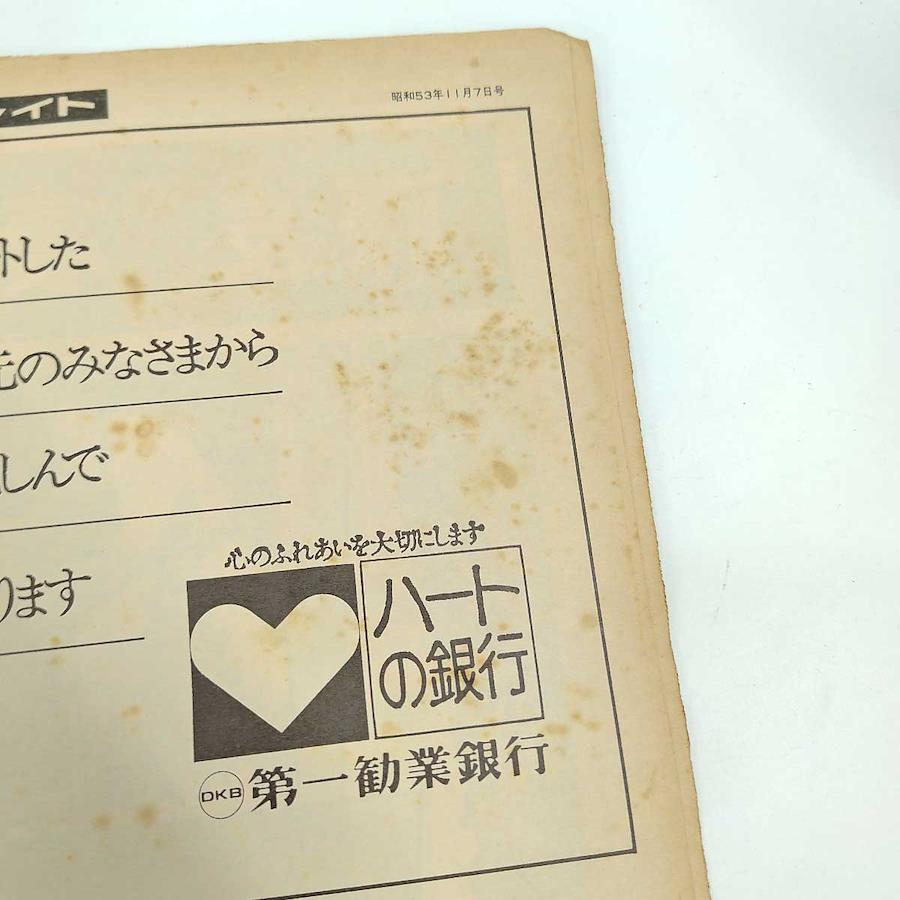 イト
昭和53年11月7日号
トした
元のみなさまから
しんで
ります
心のふれあいを大切にします
ハート
の銀行
DKB 第一勧業銀行